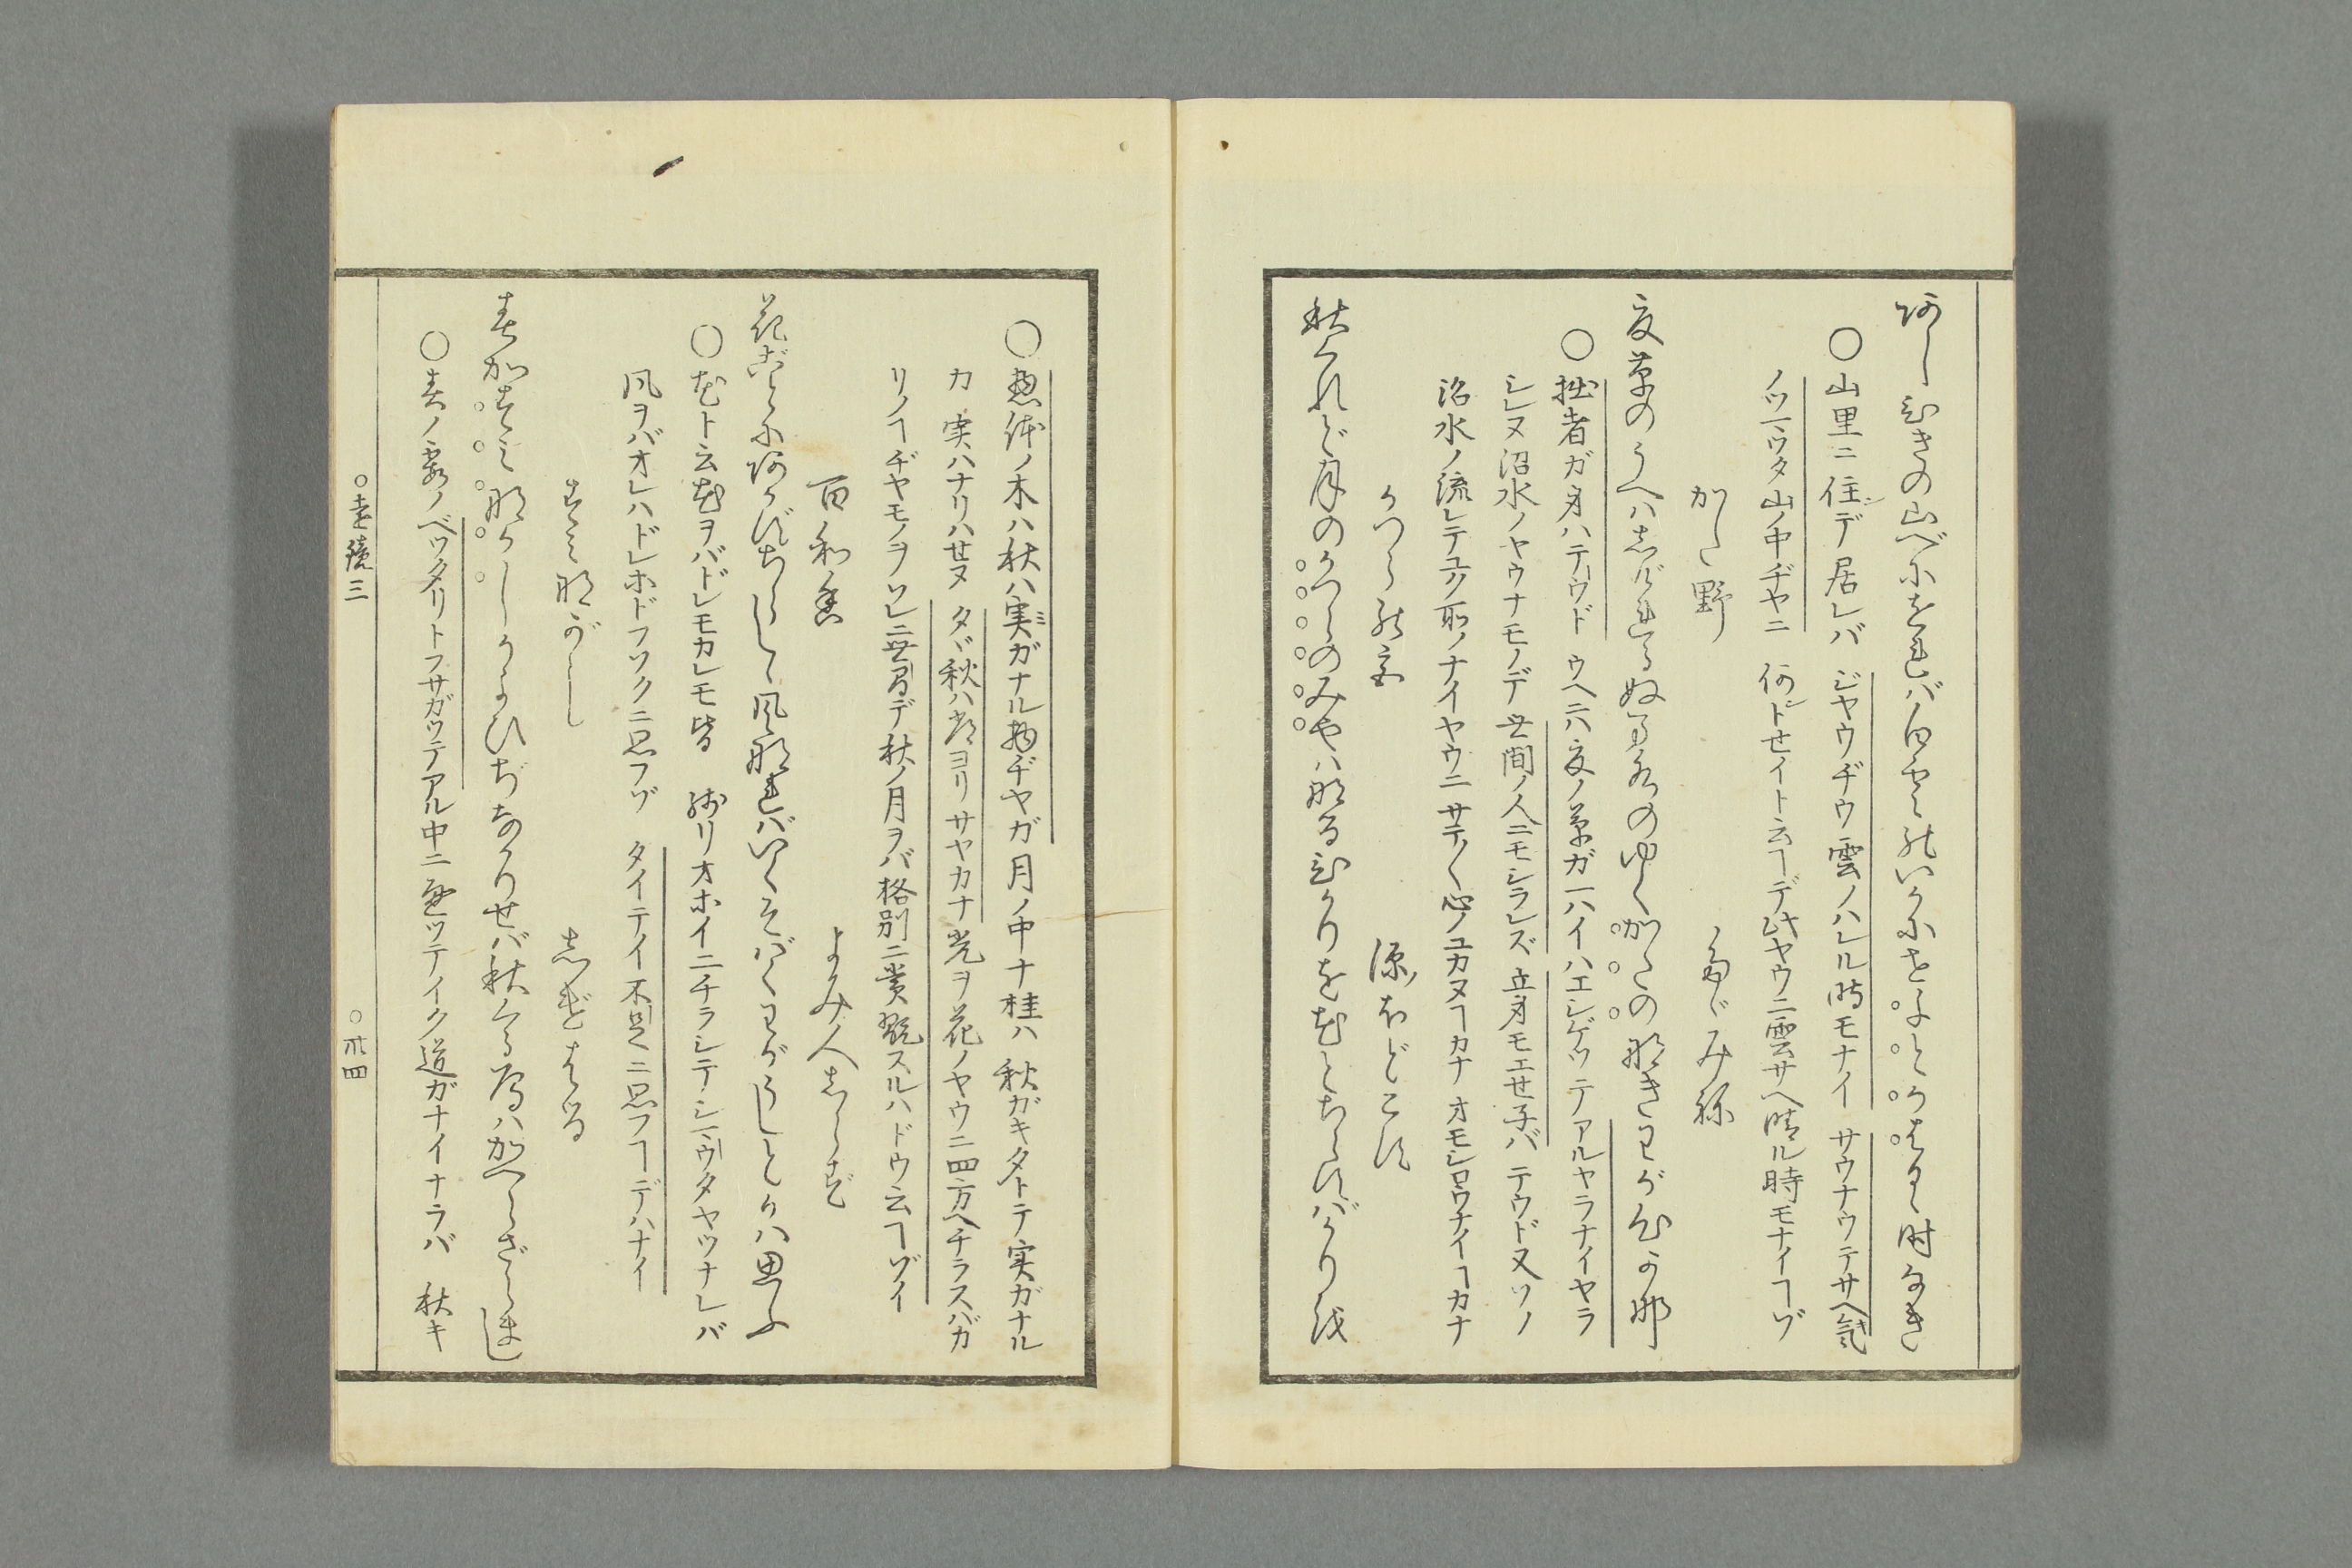 あしひきの山べにをればしら雲のいかにせよとかはるゝ時なき
○山里ニ住デ居レバ ジヤウヂウ雲ノハレル時モナイ サウナウテサヘ氣
ノツマツタ山ノ中ヂヤニ 何トセイト云ヿデ此ヤウニ雲サヘ晴ル時モナイヿゾ
かたの野 たゞみね
夏草のうへはしげれるぬま水のゆくかたのなきわが心かな
○拙者ガ身ハテウド ウヘニハ夏ノ草ガ一ハイハエシゲツテアルヤラナイヤラ
シレヌ沼水ノヤウナモノデ 世間ノ人ニモシラレズ 立身モエセ子バ テウド又ソノ
沼水ノ流レテユク所ノナイヤウニ サテ〳〵心ノユカヌヿカナ オモシロウナイヿカナ
かつらの宮 源ほどこす
秋くれど月のかつらのみやはなるひかりを花とちらすばかりを
○惣体ノ木ハ秋ハ実ガナル物ヂヤガ 月ノ中ナ桂ハ 秋ガキタトテ実ガナル
カ 実ハナリハセヌ タヾ秋ハ光ヨリサヤカナ光ヲ花ノヤウニ四方ヘチラスバカ
リノヿヂヤモノヲ ソレニ世間デ秋ノ月ヲバ格別ニ賞翫スルハドウ云ヿゾイ
百和香 よみ人しらず
花ごとにあかずちらしゝ風なればいくそばくわがうしとかは思ふ
○花ト云花ヲバドレモカレモ皆 残リオホイニチラシテシマウタヤツナレバ
風ヲバオレハドレホドフソクニ思フゾ タイテイ不足ニ思フヿデハナイ
すみながし しげはる
春がすみなかしかよひぢなかりせば秋くる鴈はかへらざらまし
○春ノ霞ノベツタリトフサガウテアル中ニ 通ツテイク道ガナイナラバ 秋キ
○遠鏡三 ○卅四